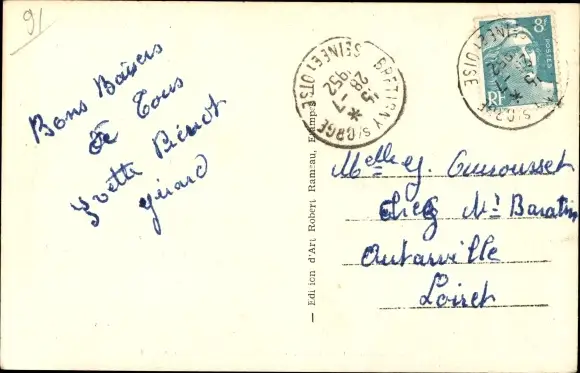 91
Bons Baisers
de Tous
Yvette Pierrot
Gérard
— Edition d'Art Robert Rameau, Etampes
BRETIGNY S/ORGE
15 H
28-7
1952
SEINE ET OISE
8F
POSTES
RF
Melle G. Guousset
chez Mr Baratin
Outarville
Loiret